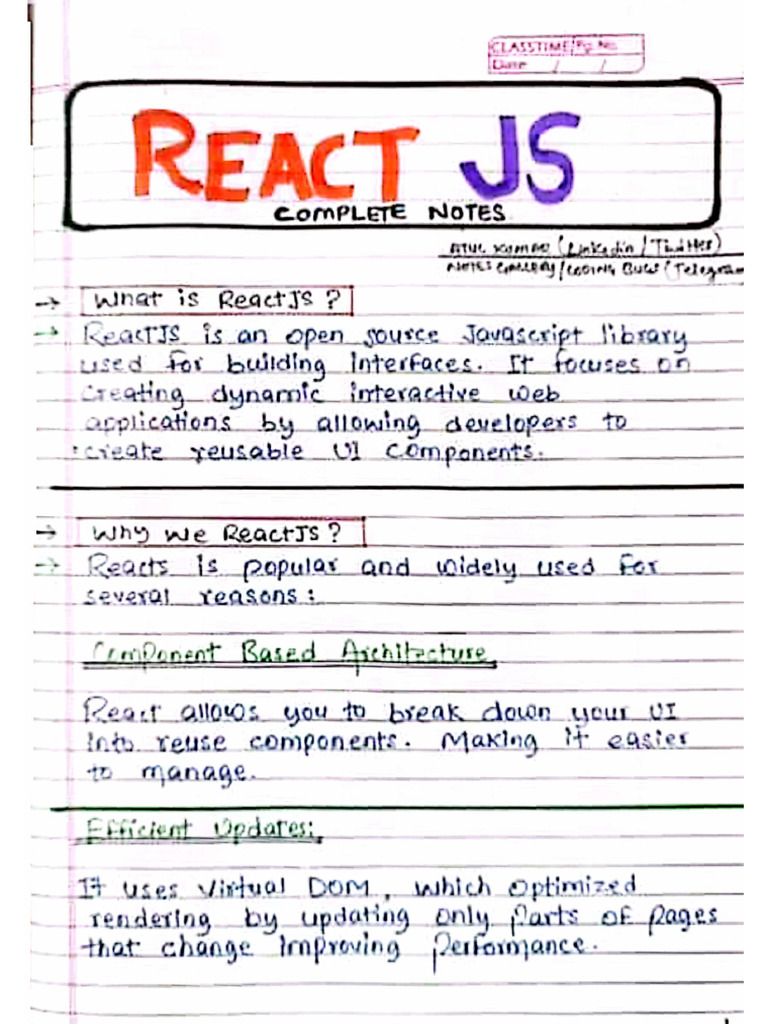 CLASSTIME Pg. No.
Date / /
REACT JS
COMPLETE NOTES
ATUL KUMAR (Linkedin / Twitter)
NOTES GALLERY / CODING BUGS (Telegram
→ What is ReactJS ?
→ ReactJS is an open source Javascript library
used for building interfaces. It focuses on
creating dynamic interactive web
applications by allowing developers to
create reusable UI components.
→ Why we ReactJS ?
→ Reacts is popular and widely used for
several reasons :
Component Based Architecture
React allows you to break down your UI
into reuse components. Making it easier
to manage.
Efficient Updates:
It uses virtual DOM , which optimized
rendering by updating only parts of pages
that change improving performance.